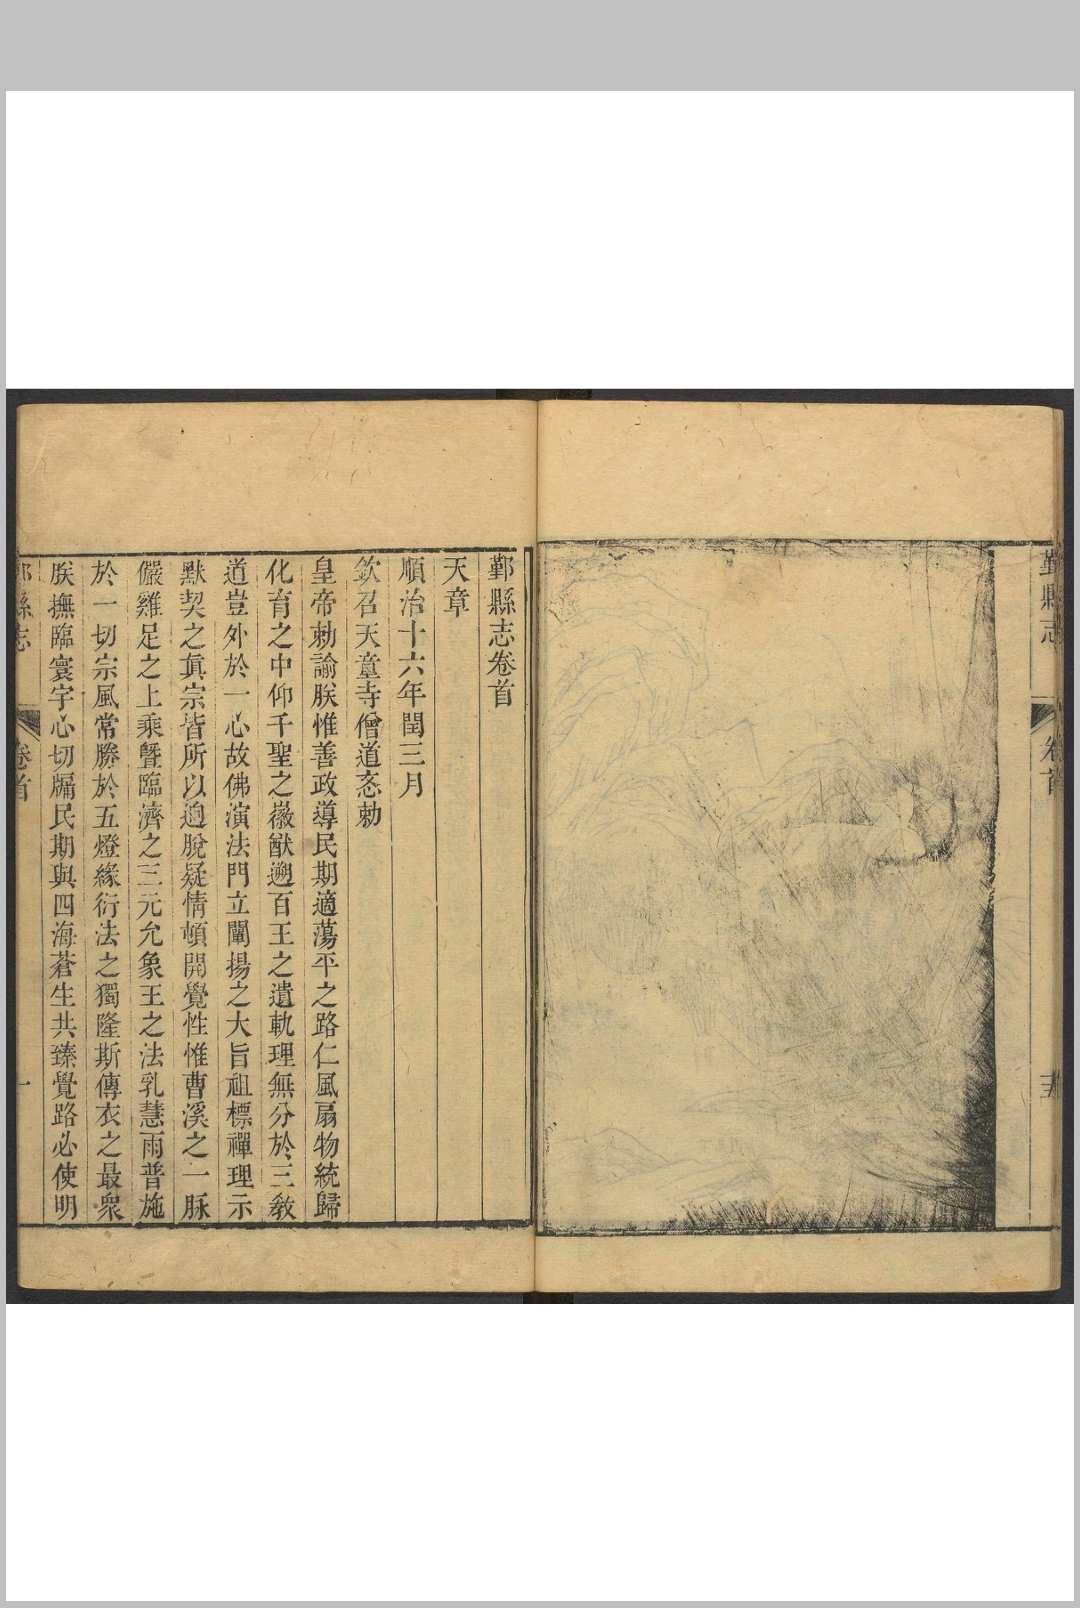 鄞縣志
卷首
五
鄞縣志卷首
天章
順治十六年閏三月
欽召天童寺僧道忞勅
皇帝勅諭朕惟善政導民期適蕩平之路仁風扇物統歸
化育之中仰千聖之徽猷遡百王之遺軌理無分於三教
道豈外於一心故佛演法門立闡揚之大旨祖標禪理示
默契之眞宗皆所以逈脫疑情頓開覺性惟曹溪之一脉
儼雞足之上乘曁臨濟之三元允象王之法乳慧雨普施
於一切宗風常勝於五燈緣衍法之獨隆斯傳衣之最衆
朕撫臨寰宇心切牖民期與四海蒼生共臻覺路必使明
鄞縣志
卷首
一